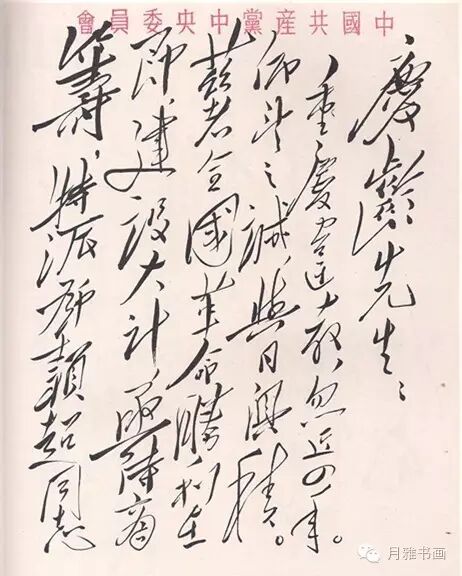 中國共産黨中央委員會
慶齡先生：
重慶違教，忽近四年。
仰望之誠，與日俱積。
茲者全國革命勝利在
即，建設大計，亟待商
籌，特派鄧穎超同志
月雅书画